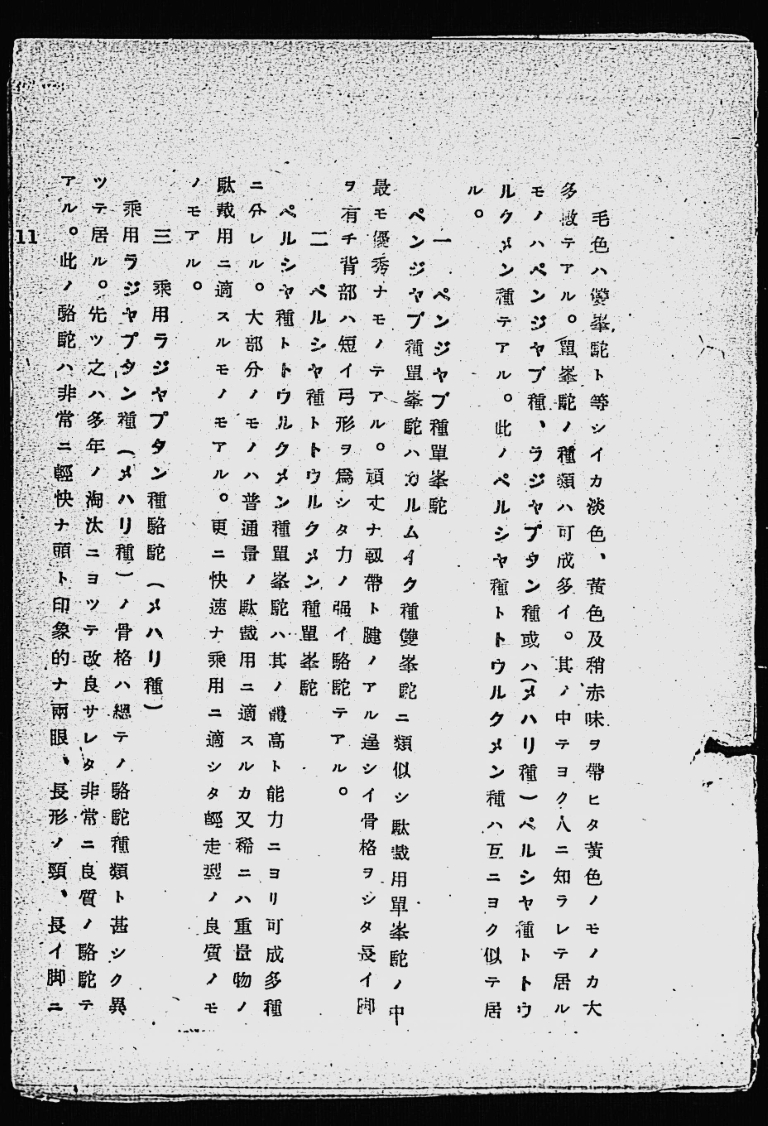 毛色ハ雙峯駝ト等シイカ淡色、黃色及稍赤味ヲ帶ヒタ黃色ノモノカ大
多數テアル。單峯駝ノ種類ハ可成多イ。其ノ中テヨク人ニ知ラレテ居ル
モノハペンジヤブ種、ラジヤプタン種或ハ(メハリ種)ペルシヤ種トトウ
ルクメン種テアル。此ノペルシヤ種トトウルクメン種ハ互ニヨク似テ居
ル。
一 ペンジヤブ種單峯駝
ペンジヤプ種單峯駝ハカルムイク種雙峯駝ニ類似シ駄戴用單峯駝ノ中
最モ優秀ナモノテアル。頑丈ナ靱帶ト腱ノアル逞シイ骨格ヲシタ長イ脚
ヲ有チ背部ハ短イ弓形ヲ爲シタ力ノ强イ駱駝テアル。
二 ペルシヤ種トトウルクメン種單峯駝
ペルシヤ種トトウルクメン種單峯駝ハ其ノ體高ト能力ニヨリ可成多種
ニ分レル。大部分ノモノハ普通量ノ駄戴用ニ適スルカ又稀ニハ重量物ノ
駄戴用ニ適スルモノモアル。更ニ快速ナ乘用ニ適シタ輕走型ノ良質ノモ
ノモアル。
三 乘用ラジヤプタン種駱駝(メハリ種)
乘用ラジヤプタン種(メハリ種)ノ骨格ハ總テノ駱駝種類ト甚シク異
ツテ居ル。先ツ之ハ多年ノ淘汰ニヨツテ改良サレタ非常ニ良質ノ駱駝テ
アル。此ノ駱駝ハ非常ニ輕快ナ頭ト印象的ナ兩眼、長形ノ頸、長イ脚ニ
11